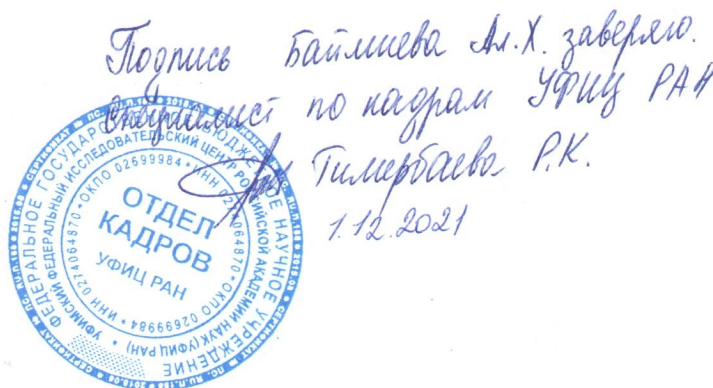 Подпись Баймиева Ал.Х. заверяю.
Специалист по кадрам УФИЦ РАН
Тимербаева Р.К.
1.12.2021
ФЕДЕРАЛЬНОЕ ГОСУДАРСТВЕННОЕ БЮДЖЕТНОЕ НАУЧНОЕ УЧРЕЖДЕНИЕ
УФИМСКИЙ ФЕДЕРАЛЬНЫЙ ИССЛЕДОВАТЕЛЬСКИЙ ЦЕНТР РОССИЙСКОЙ АКАДЕМИИ НАУК (УФИЦ РАН)
ИНН 0274064870 • ОКПО 02699984 • ИНН 0274064870 • ОКПО 02699984
ОТДЕЛ
КАДРОВ
УФИЦ РАН